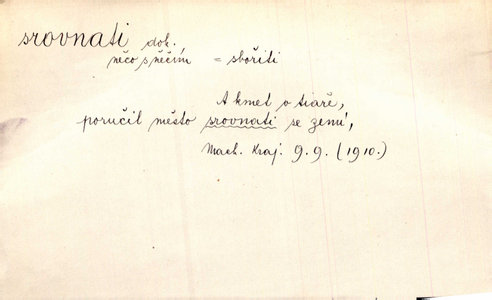 srovnati dok.
něčo s něčím = sbořiti
A kmet o tiaře,
poručil město srovnati se zemí,
Mach. Kraj. 9.9. (1910.)